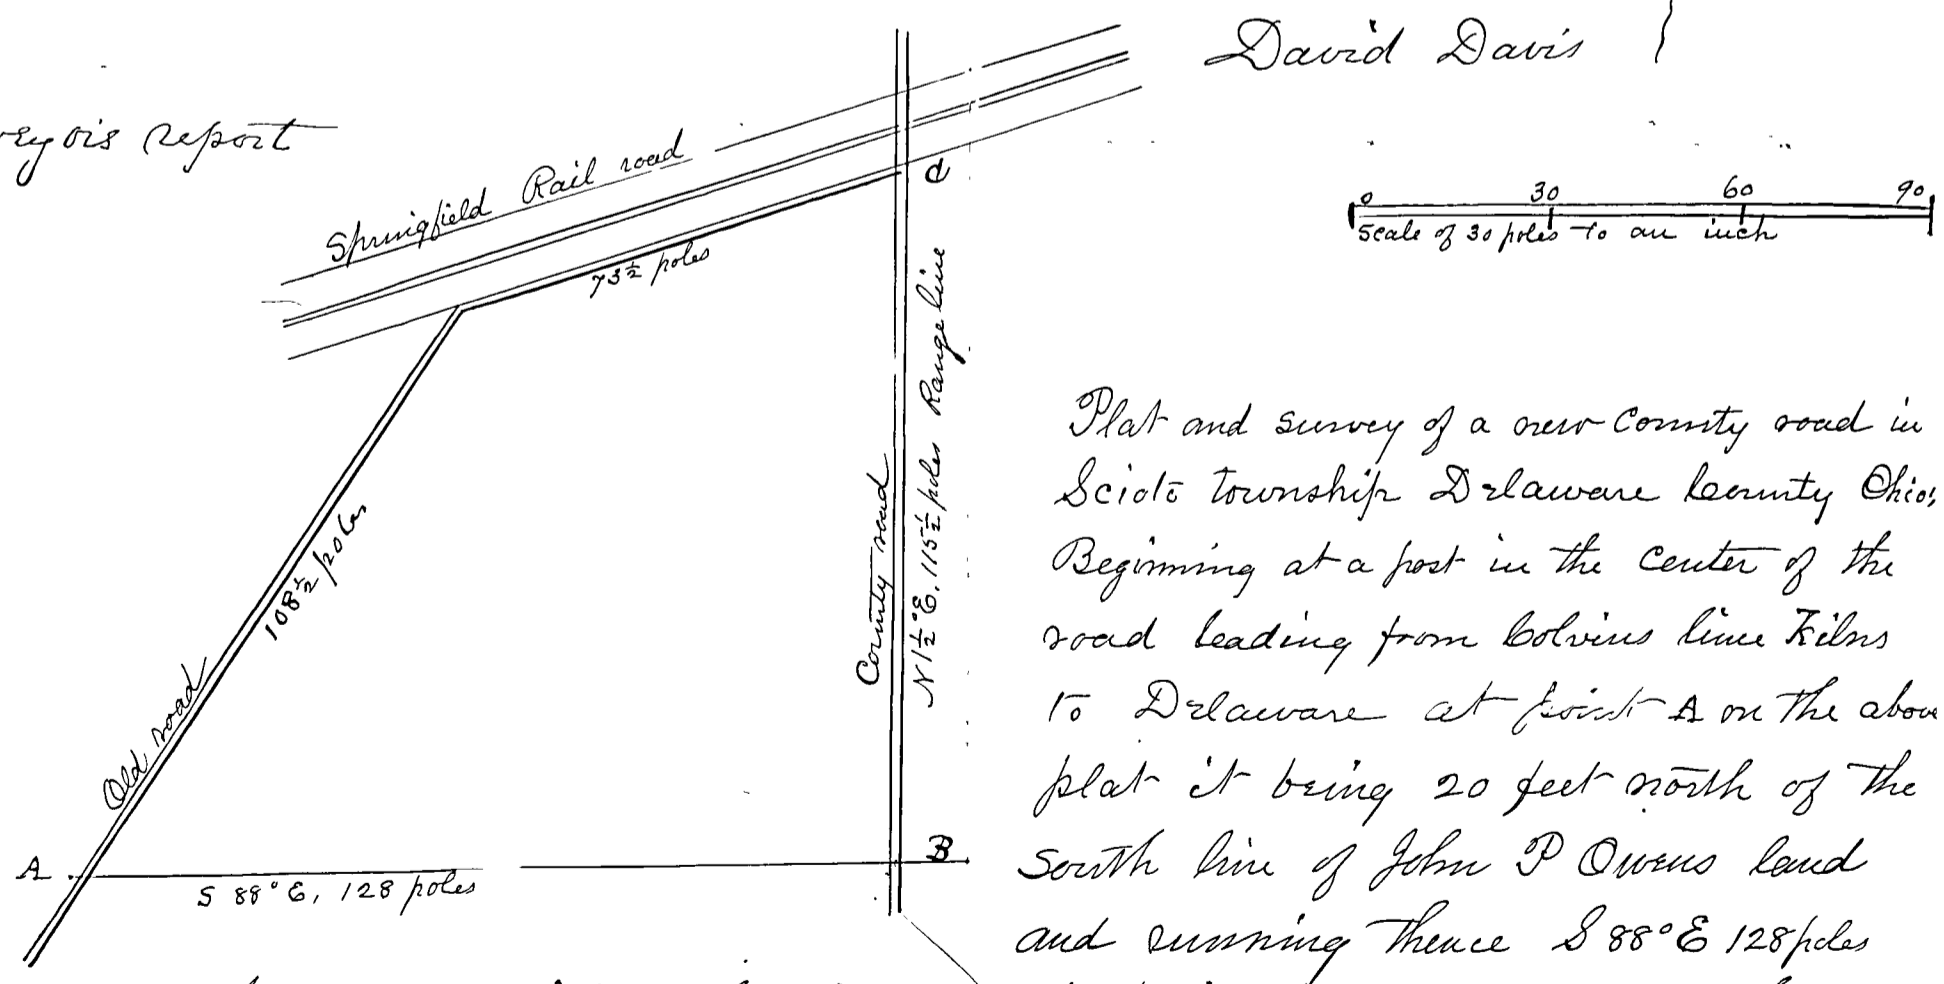 David Davis
report
Springfield Rail road
C
73½ poles
0 30 60 90
Scale of 30 poles to an inch
N 1½° E, 115½ poles Range line
County road
108½ poles
Old road
A
B
S 88° E, 128 poles
Plat and survey of a new County road in
Scioto township Delaware County Ohio,
Beginning at a post in the center of the
road leading from Colvins lime Kilns
to Delaware at point A on the above
plat it being 20 feet north of the
South line of John P Owens land
and running thence S 88° E 128 poles